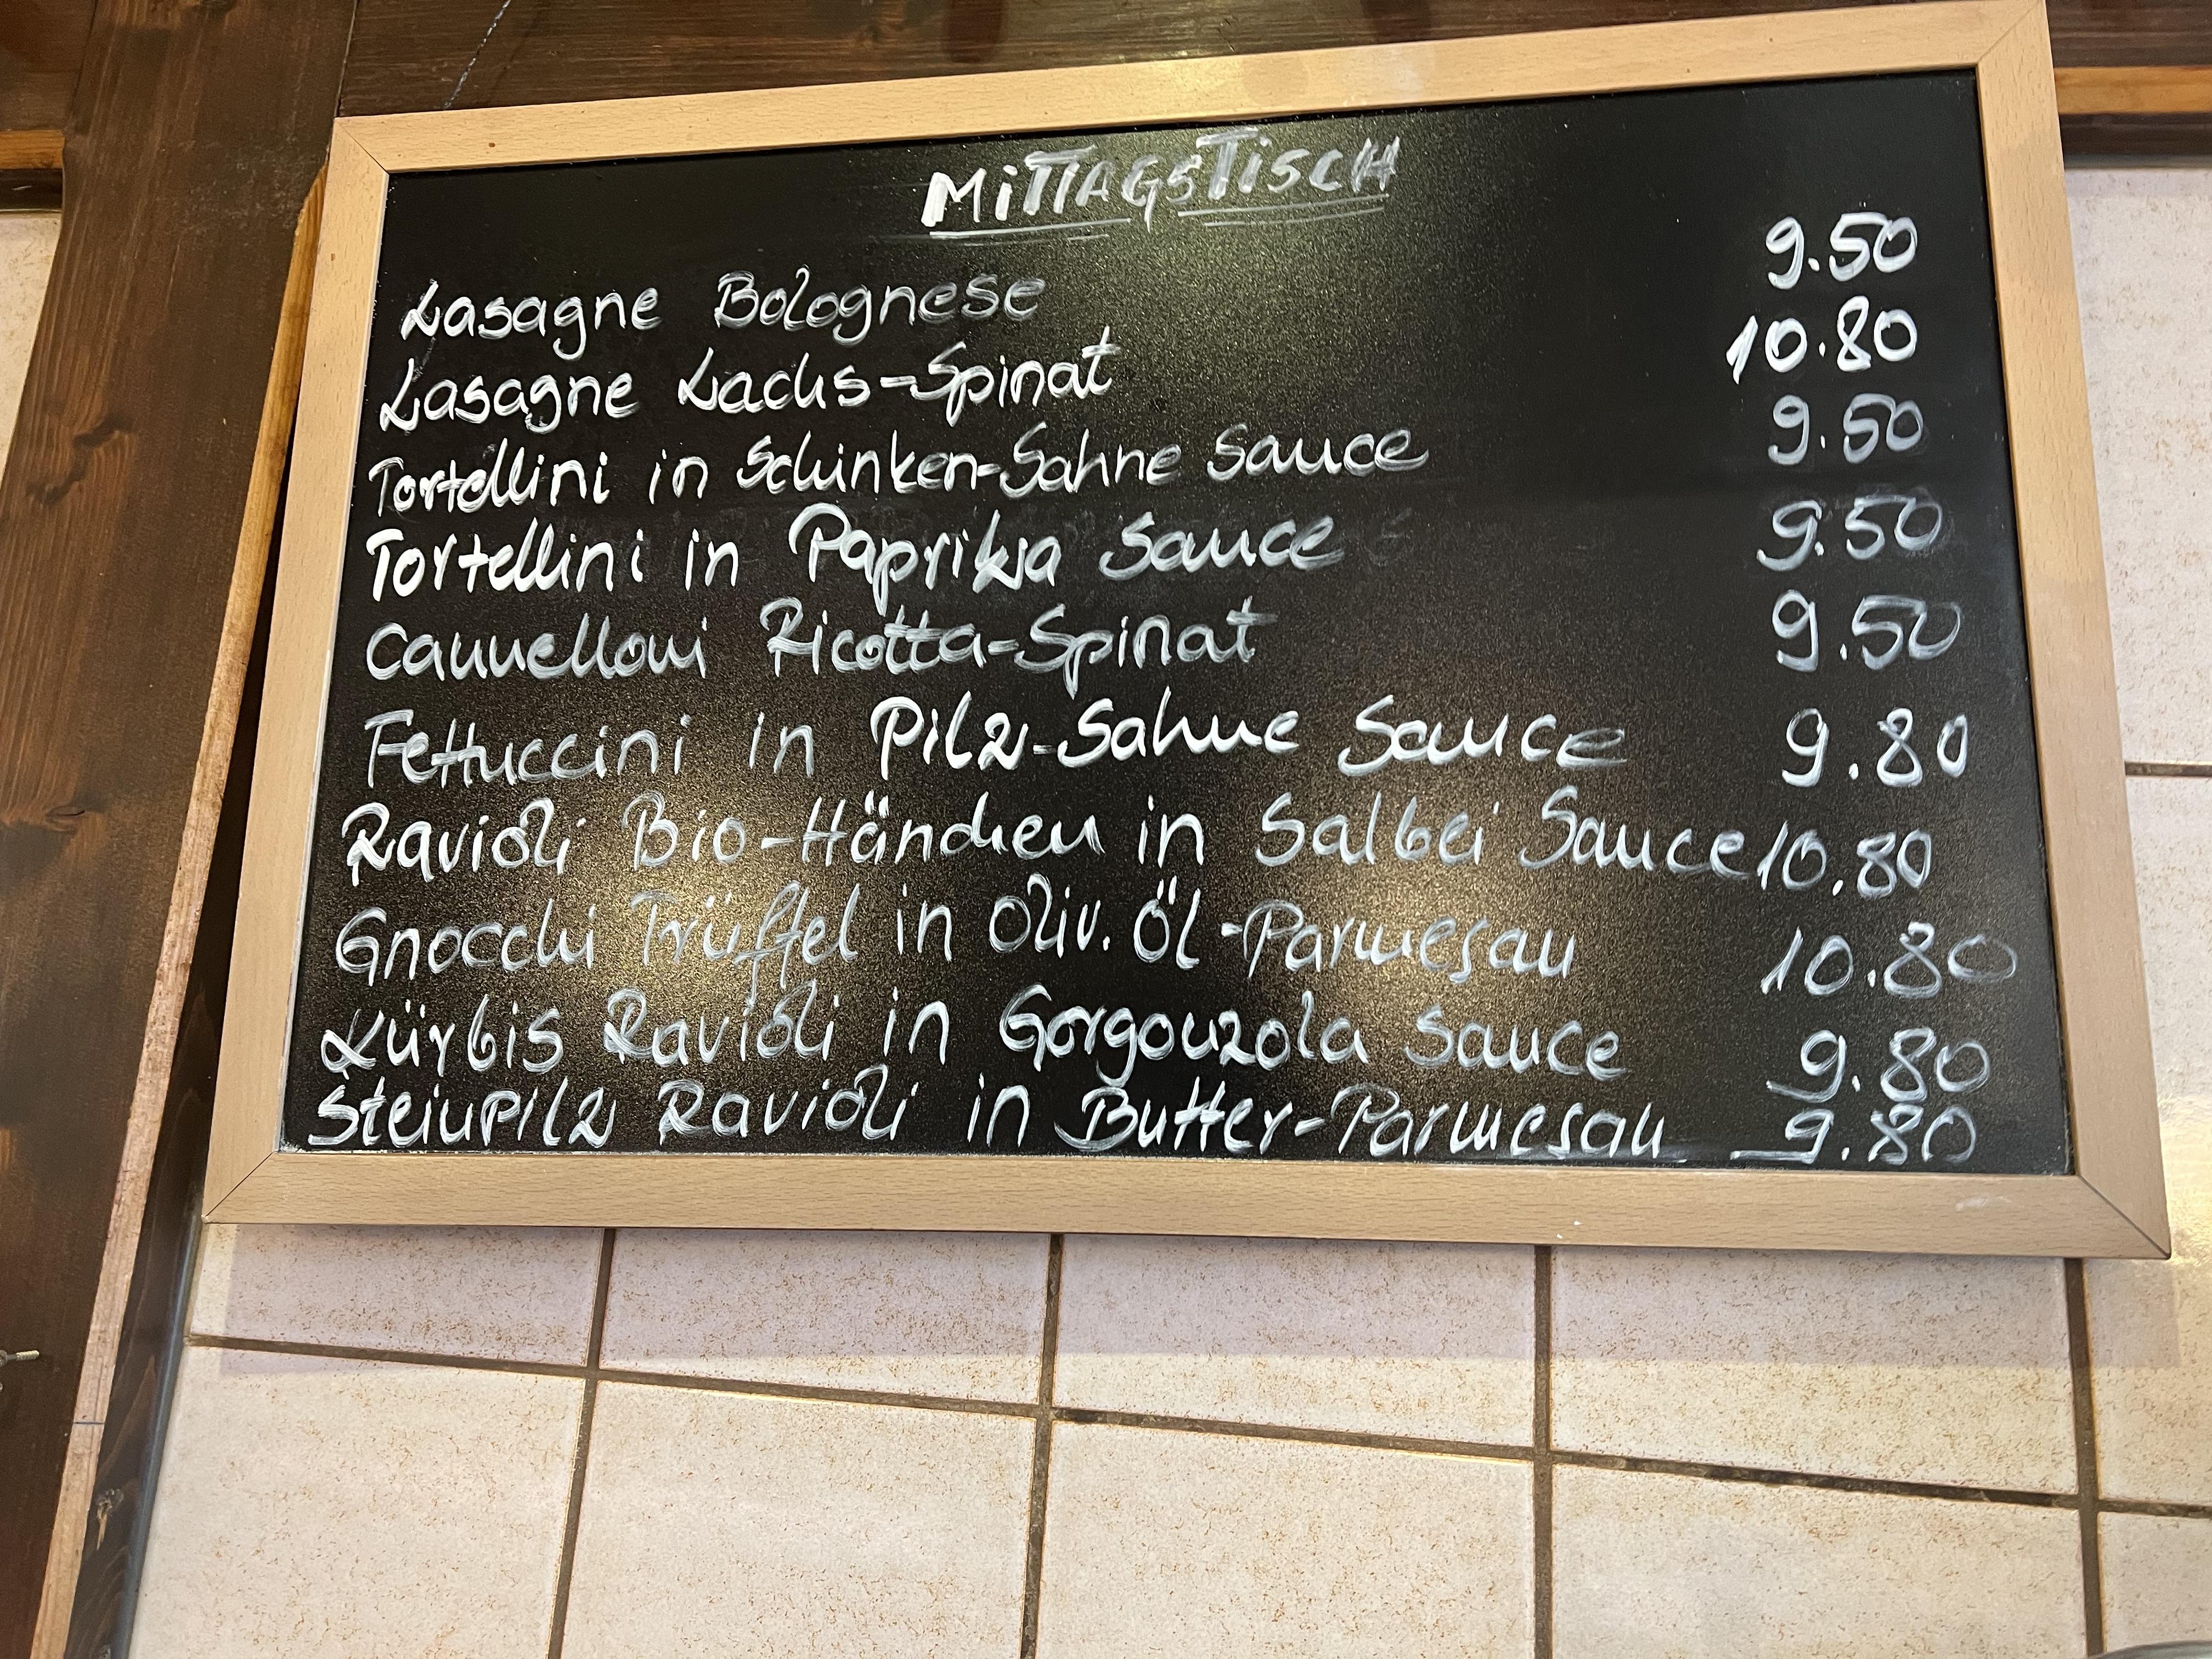 MiTTAGSTISCH
Lasagne Bolognese 9.50
Lasagne Lachs-Spinat 10.80
Tortellini in Schinken-Sahne Sauce 9.50
Tortellini in Paprika Sauce 9.50
Cannelloni Ricotta-Spinat 9.50
Fettuccini in Pilz-Sahne Sauce 9.80
Ravioli Bio-Hänchen in Salbei Sauce 10.80
Gnocchi Trüffel in Oliv. Öl-Parmesan 10.80
Kürbis Ravioli in Gorgonzola Sauce 9.80
Steinpilz Ravioli in Butter-Parmesan 9.80